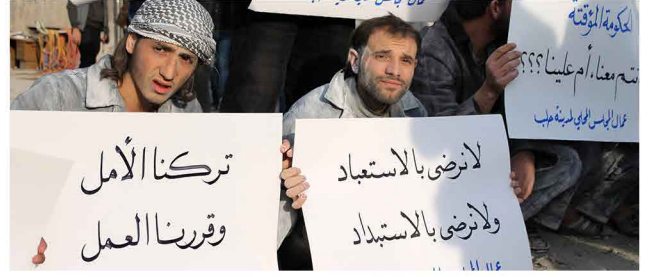 تركنا الأمل
وقررنا العمل
لا نرضى بالاستعباد
ولا نرضى بالاستبداد
الحكومة المؤقتة
أنتم معنا، أم علينا؟؟؟
عمال المجلس المحلي لمدينة حلب